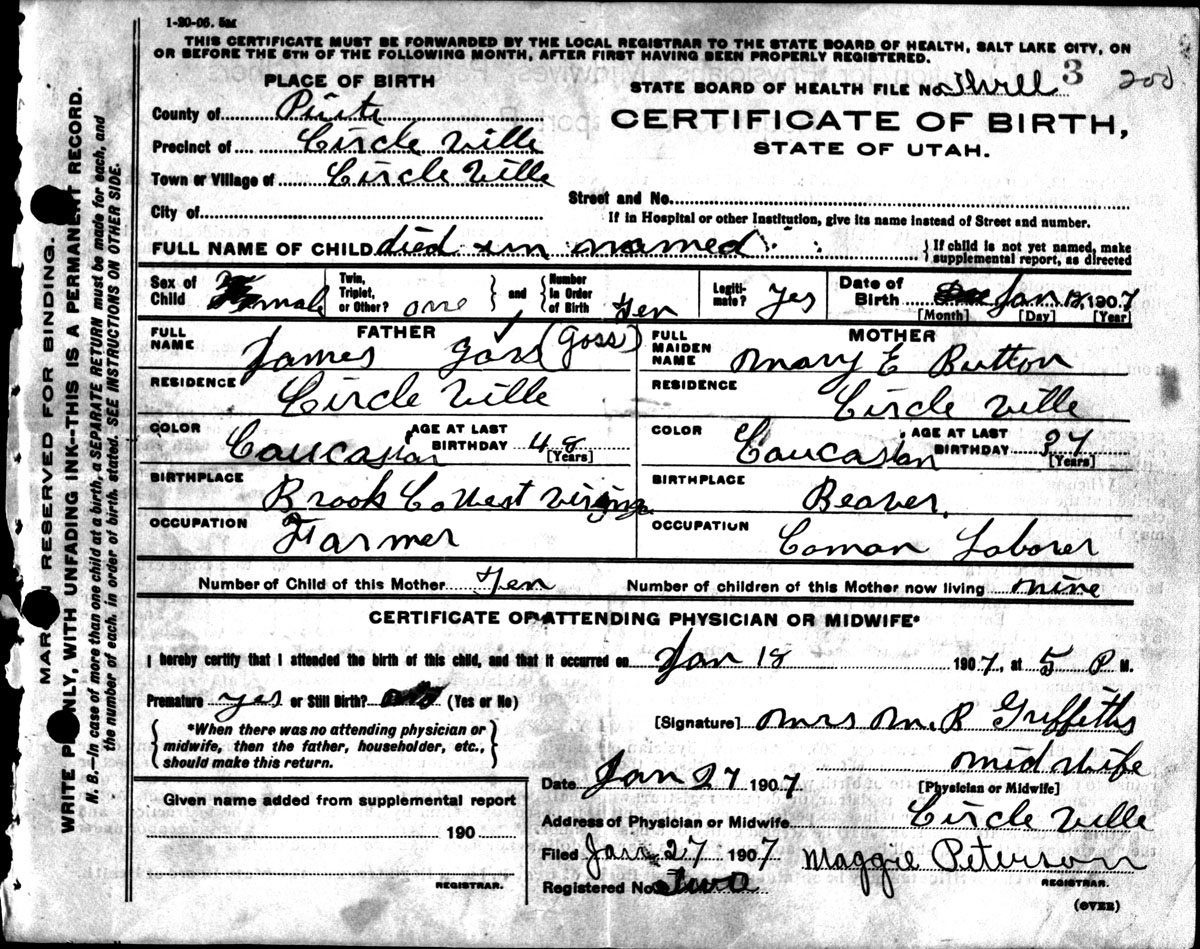 1-20-06. 5M
THIS CERTIFICATE MUST BE FORWARDED BY THE LOCAL REGISTRAR TO THE STATE BOARD OF HEALTH, SALT LAKE CITY, ON
OR BEFORE THE 5TH OF THE FOLLOWING MONTH, AFTER FIRST HAVING BEEN PROPERLY REGISTERED.
PLACE OF BIRTH
STATE BOARD OF HEALTH FILE No. 3 200
County of Piute
CERTIFICATE OF BIRTH,
Precinct of Circle ville
STATE OF UTAH.
Town or Village of Circle ville
Street and No.
City of
If in Hospital or other Institution, give its name instead of Street and number.
FULL NAME OF CHILD died un named
If child is not yet named, make
supplemental report, as directed
Sex of Child Female
Twin, Triplet, or Other? one
and Number In Order of Birth Ten
Legitimate? Yes
Date of Birth Jan 1907
[Month] [Day] [Year]
FATHER
FULL NAME James Goss (Goss)
RESIDENCE Circle ville
COLOR Caucasian AGE AT LAST BIRTHDAY 48 [Years]
BIRTHPLACE Brook Co West
OCCUPATION Farmer
MOTHER
FULL MAIDEN NAME Mary E Button
RESIDENCE Circle ville
COLOR Caucasian AGE AT LAST BIRTHDAY 37 [Years]
BIRTHPLACE Beaver
OCCUPATION Coman Laborer
Number of Child of this Mother Ten Number of children of this Mother now living nine
CERTIFICATE OF ATTENDING PHYSICIAN OR MIDWIFE*
I hereby certify that I attended the birth of this child, and that it occurred on Jan 18 1907, at 5 P M.
Premature yes or Still Birth? (Yes or No)
*When there was no attending physician or
midwife, then the father, householder, etc.,
should make this return.
[Signature] Mrs M. R Griffiths
Mid wife
[Physician or Midwife]
Date Jan 27 1907
Address of Physician or Midwife Circle ville
Filed Jan 27 1907 Maggie Peterson
REGISTRAR.
Registered No. Two
(OVER)
Given name added from supplemental report
190
REGISTRAR.
MARGIN RESERVED FOR BINDING.
WRITE PLAINLY, WITH UNFADING INK--THIS IS A PERMANENT RECORD.
N. B.—In case of more than one child at a birth, a SEPARATE RETURN must be made for each, and
the number of each, in order of birth, stated. SEE INSTRUCTIONS ON OTHER SIDE.